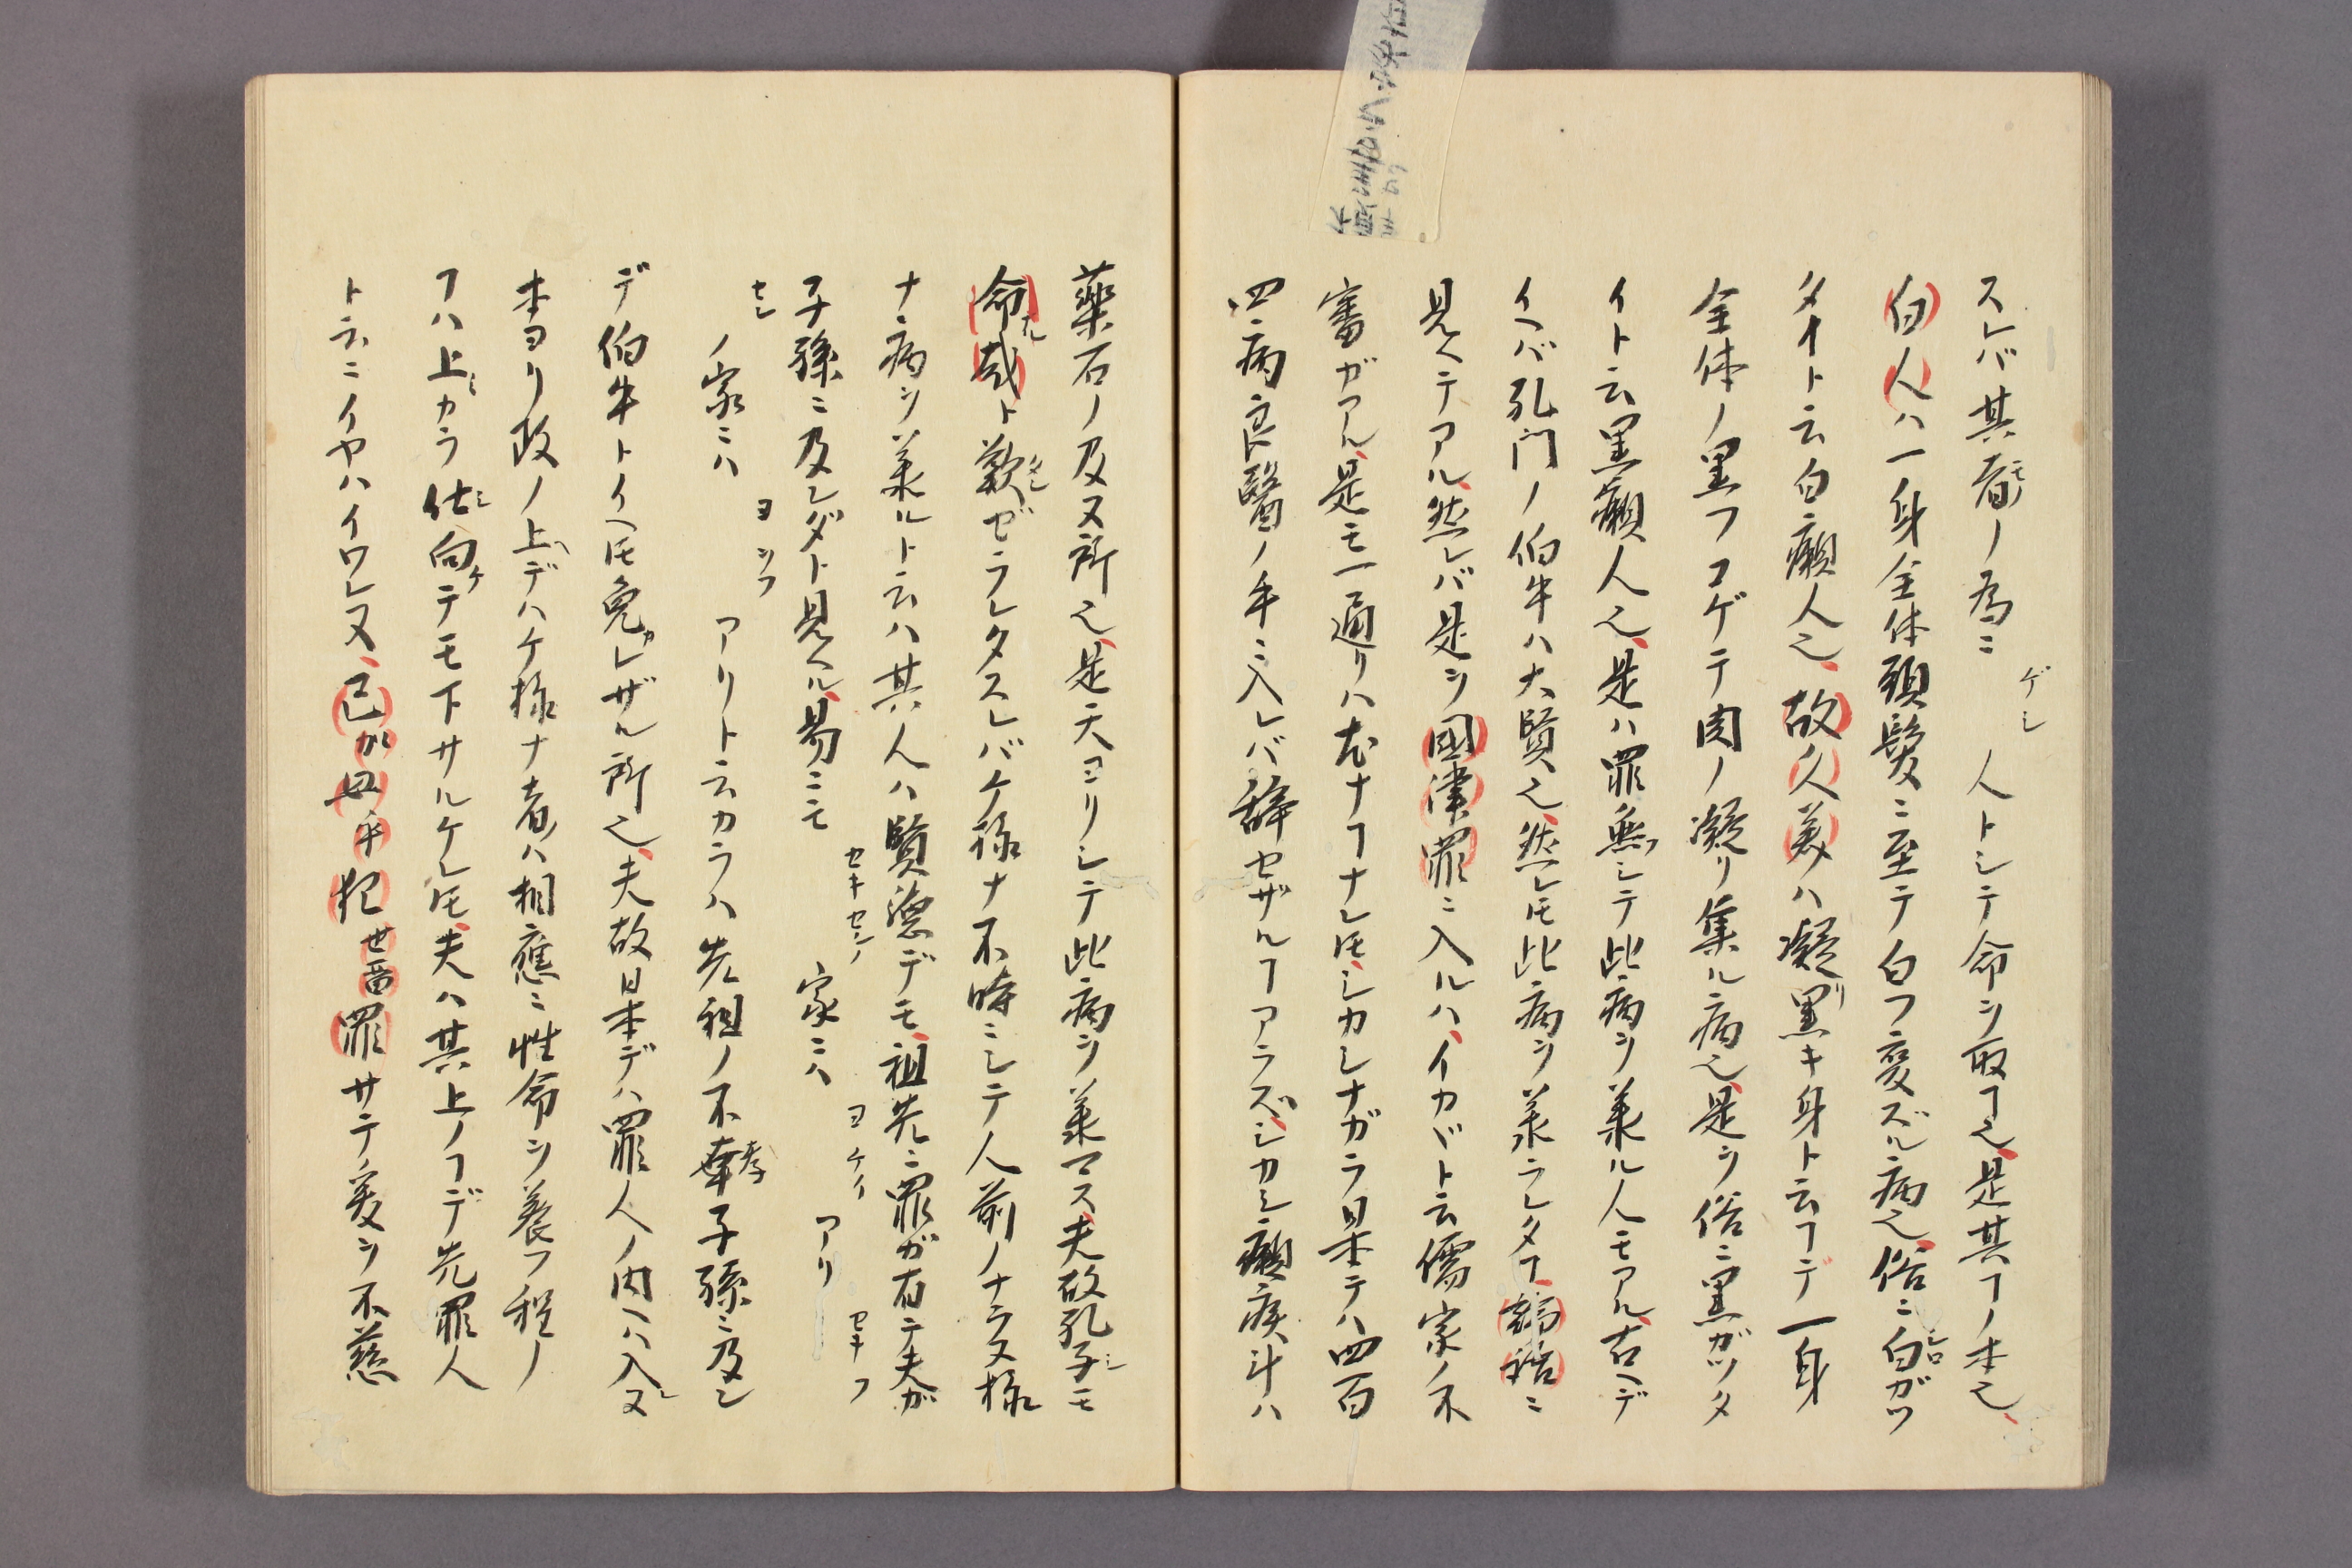 スレバ其者ノ為ニ 人トシテ命ヲ取ヿ也是其ヿノ本也
ゲシ
白人ハ一身全体頭髪ニ至テ白フ変ズル病也俗ニ白ガツ
タイト云白癩人也故久美ハ凝リ黒キ身ト云ヿデ一身
全体ノ黒フコゲテ肉ノ凝リ集ル病也是ヲ俗ニ黒ガツタ
イト云黒癩人也是ハ罪無シテ此病ヲ羕ル人モアル古ヘデ
イヘバ孔門ノ伯牛ハ大賢也然レ𪜈此病ヲ羕ラレタヿ論語ニ
見ヘテアル然レバ是ヲ国津罪ニ入ルハイカヾト云儒家ノ不
審ガアル是モ一通リハ尤ナヿナレ𪜈シカシナガラ日本テハ四百
四病良醫ノ手ニ入レバ辞セザルヿアラズシカシ癩疾斗ハ
薬石ノ及ヌ所也是天ヨリシテ此病ヲ羕マス夫故孔子モ
命哉ト歎ゼラレタスレバケ様ナ不時ニシテ人前ノナラヌ様
ナ病ヲ羕ルト云ハ其人ハ賢徳デモ祖先ニ罪ガ有テ夫ガ
子孫ニ及シダト見ヘル易ニモ 家ニハ アリ
セキセンノ ヨケイ セキフ
セン ノ家ニハ ヨヲフ アリト云カラハ先祖ノ不孝子孫ニ及シ
デ伯牛トイヘ𪜈免レザル所也夫故日本デハ罪人ノ内ヘハ入ヌ
本ヨリ政ノ上デハケ様ナ者ハ相應ニ性命ヲ養フ程ノ
ヿハ上カラ仕向テモ下サルケレ𪜈夫ハ其上ノヿデ先罪人
ト云ニイヤハイワレヌ己が母乎犯世留罪サテ爰ヲ不慈